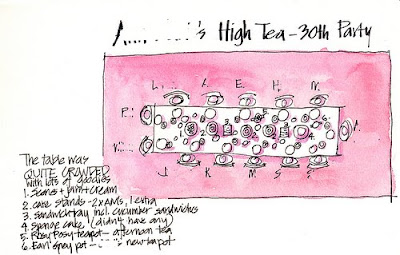 's High Tea - 30th Party
L. A. E. H. N.
P.
A.
J. K. M. S. S.
The table was
QUITE CROWDED
with lots of goodies
1. Scones + jam + cream
2. cake stands - 2 x AMs, 1 extra
3. Sandwich tray incl. cucumber sandwiches
4. Sponge cake (didn't have any)
5. Rosy Posy teapot - afternoon tea
6. Earl Grey pot - 's new teapot